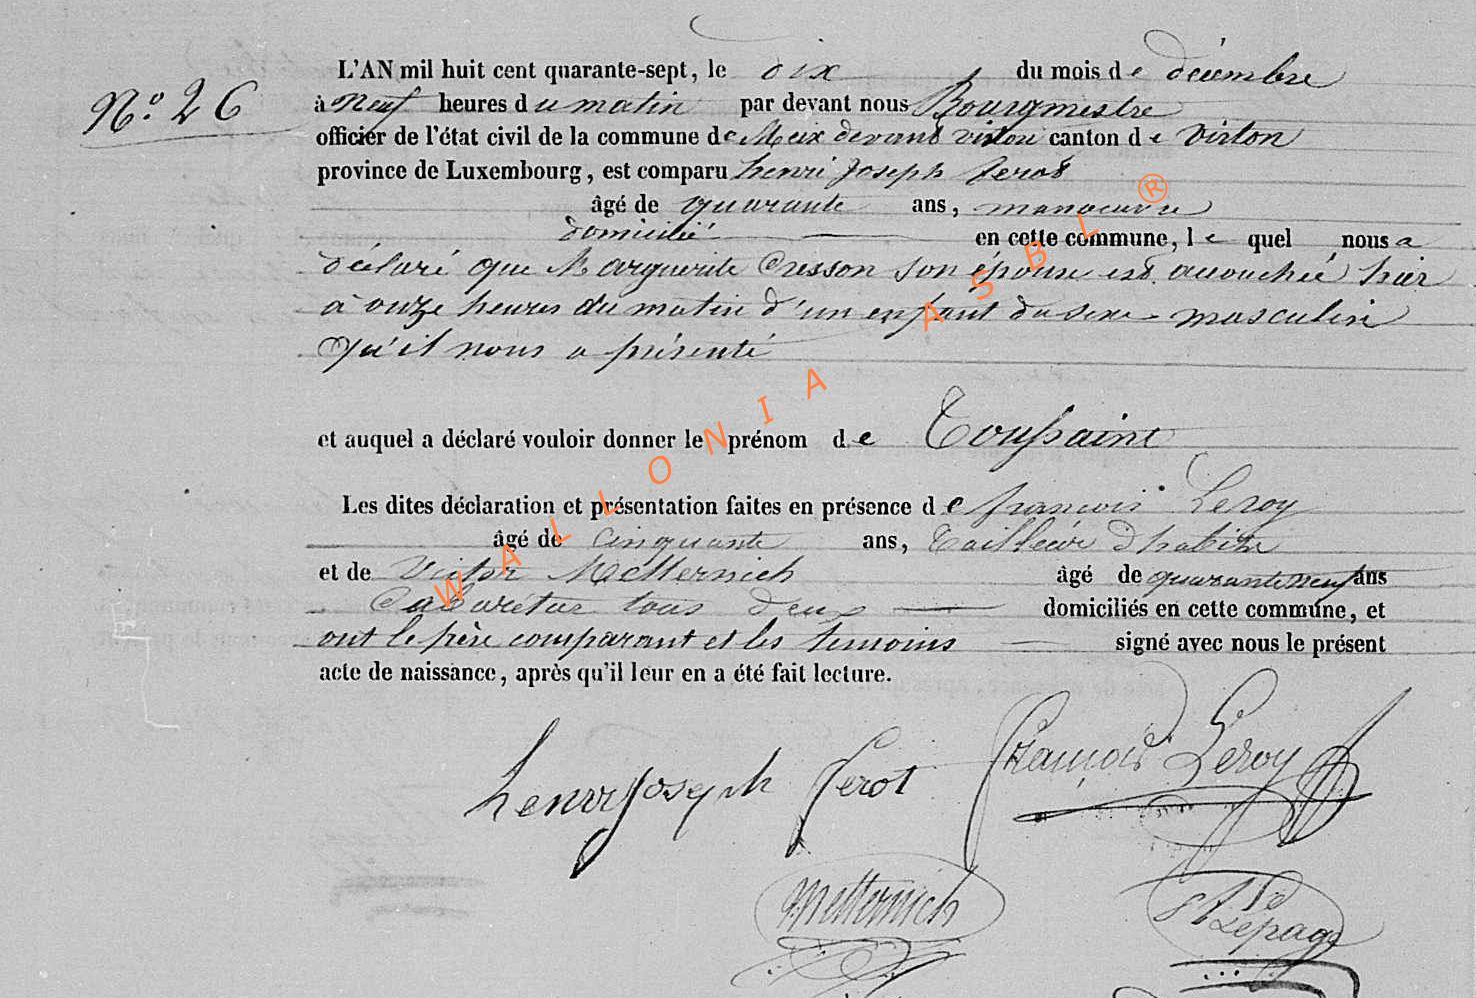 N.º 26
L'AN mil huit cent quarante-sept, le dix du mois de décembre
à neuf heures du matin par devant nous Bourgmestre
officier de l'état civil de la commune de Meix devant virton canton de virton
province de Luxembourg, est comparu henri joseph ferot
âgé de quarante ans, manoeuvre
domicilié en cette commune, le quel nous a
déclaré que Marguerite Cresson son épouse est accouchée hier
à onze heures du matin d'un enfant du sexe masculin
qu'il nous a présenté
et auquel a déclaré vouloir donner le prénom de Toussaint
Les dites déclaration et présentation faites en présence de françois Leroy
âgé de cinquante ans, tailleur d'habits
et de Victor Metternich âgé de quarante neuf ans
Cabaretier tous deux domiciliés en cette commune, et
ont le père comparant et les temoins signé avec nous le présent
acte de naissance, après qu'il leur en a été fait lecture.
henry joseph ferot François Leroy
Metternich Lepage
WALLONIA ASBL ®